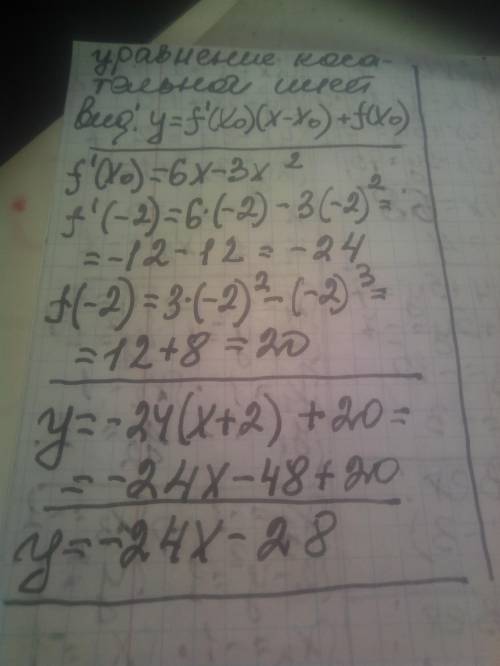 уравнение каса-
тельной имеет
вид: y=f'(x₀)(x-x₀)+f(x₀)
f'(x₀)=6x-3x²
f'(-2)=6·(-2)-3(-2)²=
=-12-12=-24
f(-2)=3·(-2)²-(-2)³=
=12+8=20
y=-24(x+2)+20=
=-24x-48+20
y=-24x-28